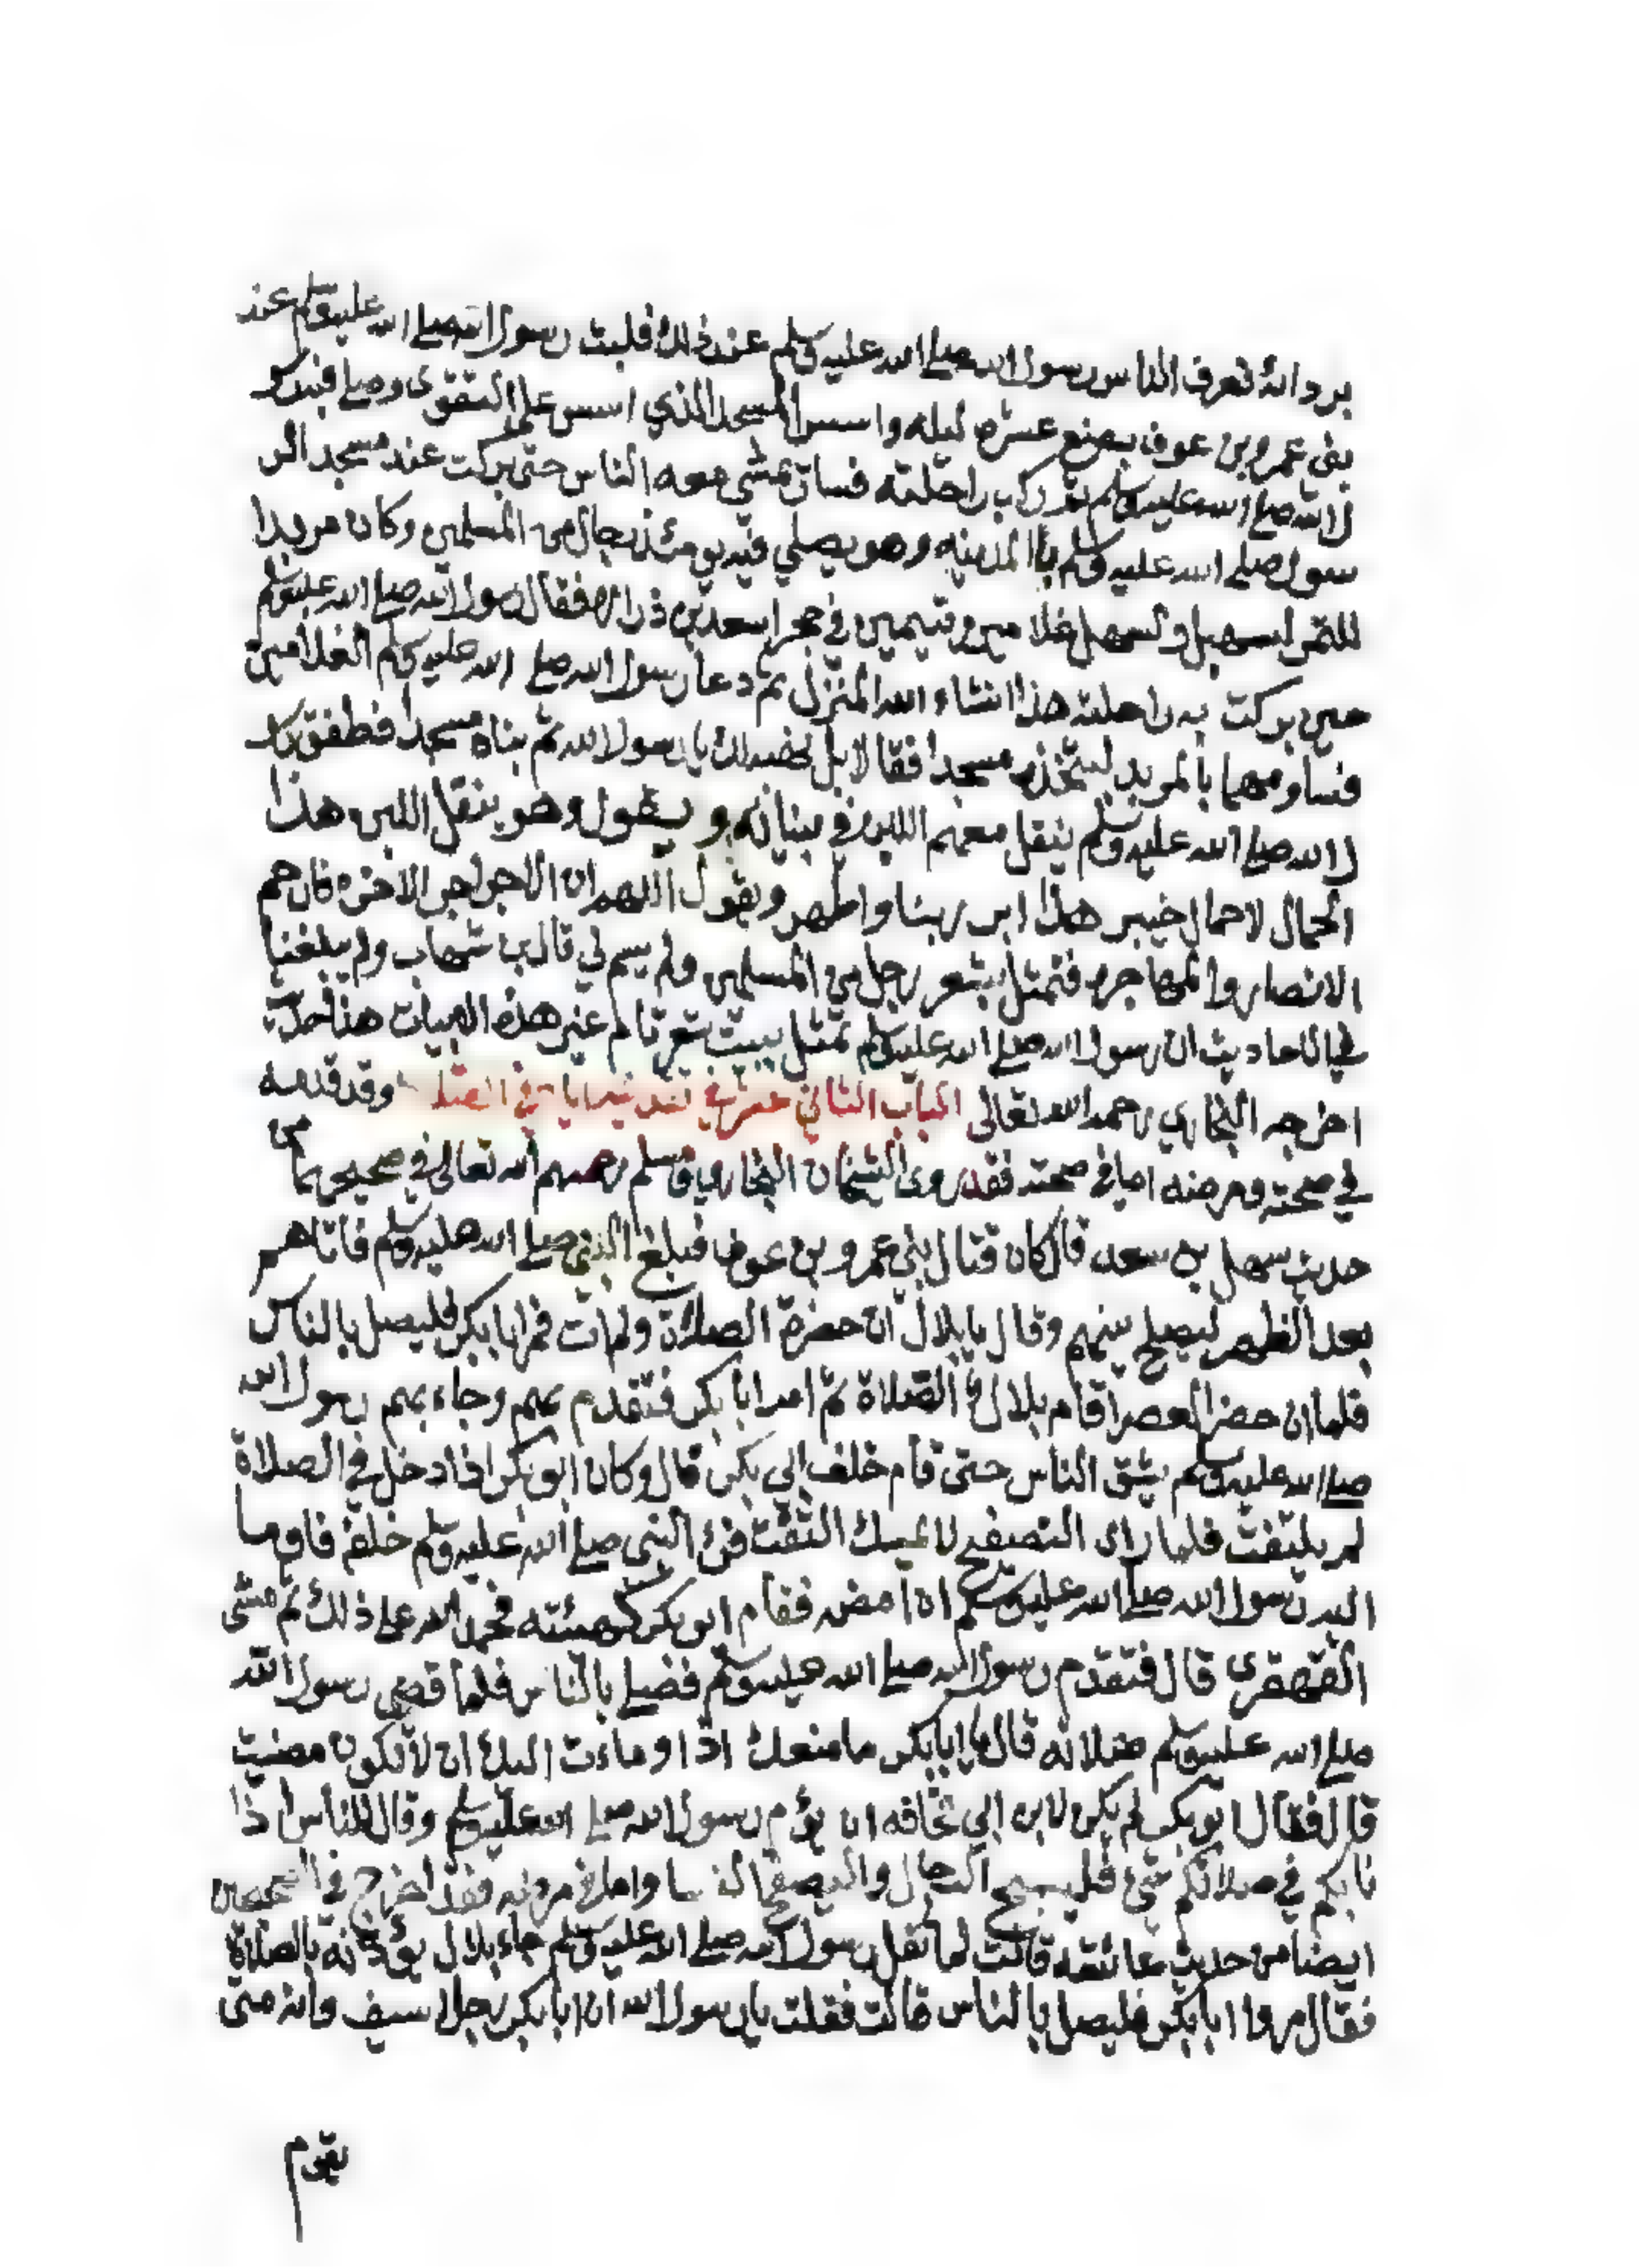 بردائه فعرف الناس رسول الله صلى الله عليه وسلم عند ذلك فلبث رسول الله صلى الله عليه وسلم عند
بني عمرو بن عوف بضع عشره ليله واسس المسجد الذي اسس على التقوى وصلى فيه رسو
ل الله صلى الله عليه وسلم ثم ركب راحلته فسار يمشي معه الناس حتى بركت عند مسجد الر
سول صلى الله عليه وسلم باالمدينه وهو يصلي فيه يومئذ رجال من المسلمين وكان مربدا
للتمر لسهيل ولسهل غلامين يتيمين في حجر اسعد بن ذراره فقال رسول الله صلى الله عليه وسلم
حين بركت به راحلته هذا انشاء الله المنزل ثم دعا رسول الله صلى الله عليه وسلم الغلامين
فساومهما بالمربد ليتخذه مسجدا فقالا بل نهبه لك يا رسول الله ثم بناه مسجدا فطفق رسو
ل الله صلى الله عليه وسلم ينقل معهم اللبن في بنيانه و يقول وهو ينقل اللبن هذا
الحمال لاحمال خيبر هذا ابر ربنا واطهر ويقول اللهم ان الاجر اجر الاخره فارحم
الانصار والمهاجره فتمثل بشعر رجل من المسلمين ولم يسم لي قال بن شهاب ولم يبلغنا
في الاحاديث ان رسول الله صلى الله عليه وسلم تمثل ببيت شعر تام غير هذه الابيات هذا حديث
اخرجه البخاري رحمه الله تعالى الباب الثاني عشر في الصلاة وقد قدمه
في صحته ومرضه اما في صحته فقد روى الشيخان البخاري ومسلم رحمهم الله تعالى في صحيحيهما من
حديث سهل بن سعد قال كان قتال بني عمرو بن عوف فبلغ النبي صلى الله عليه وسلم فاتاهم
بعد الظهر ليصلح بينهم وقال يا بلال ان حضرة الصلاة ولم ات فمر ابا بكر فليصل بالناس
فلما ان حضر العصر اقام بلال الصلاة ثم امر ابا بكر فتقدم بهم وجاء بهم رسول الله
صلى الله عليه وسلم يشق الناس حتى قام خلف ابي بكر قال وكان ابو بكر اذا دخل في الصلاة
لم يلتفت فلما راى التصفيح لا يمسك التفت فرئ النبي صلى الله عليه وسلم خلفه فاوما
اليه رسول الله صلى الله عليه وسلم ان امضه فقام ابو بكر كهيئته فحمد الله على ذلك ثم مشى
القهقرى قال فتقدم رسول الله صلى الله عليه وسلم فصلى بالناس فلما قضى رسول الله
صلى الله عليه وسلم صلاته قال يا ابا بكر ما منعك اذا وماءت اليك ان لا تكون مضيت
قال فقال ابو بكر لم يكن لابن ابي قحافه ان يؤم رسول الله صلى الله عليه وسلم وقال للناس اذا
نابكم في صلاتكم شئ فليسبح الرجال والتصفح النسا واما في مرضه فقد اخرج في الصحيحان
ايضا من حديث عائشه قالت لما ثقل رسول الله صلى الله عليه وسلم جاء بلال يؤذنه بالصلاة
فقال مروا ابا بكر فليصل بالناس قالت فقلت يا رسول الله ان ابا بكر رجلا سيف وانه متى
يقوم